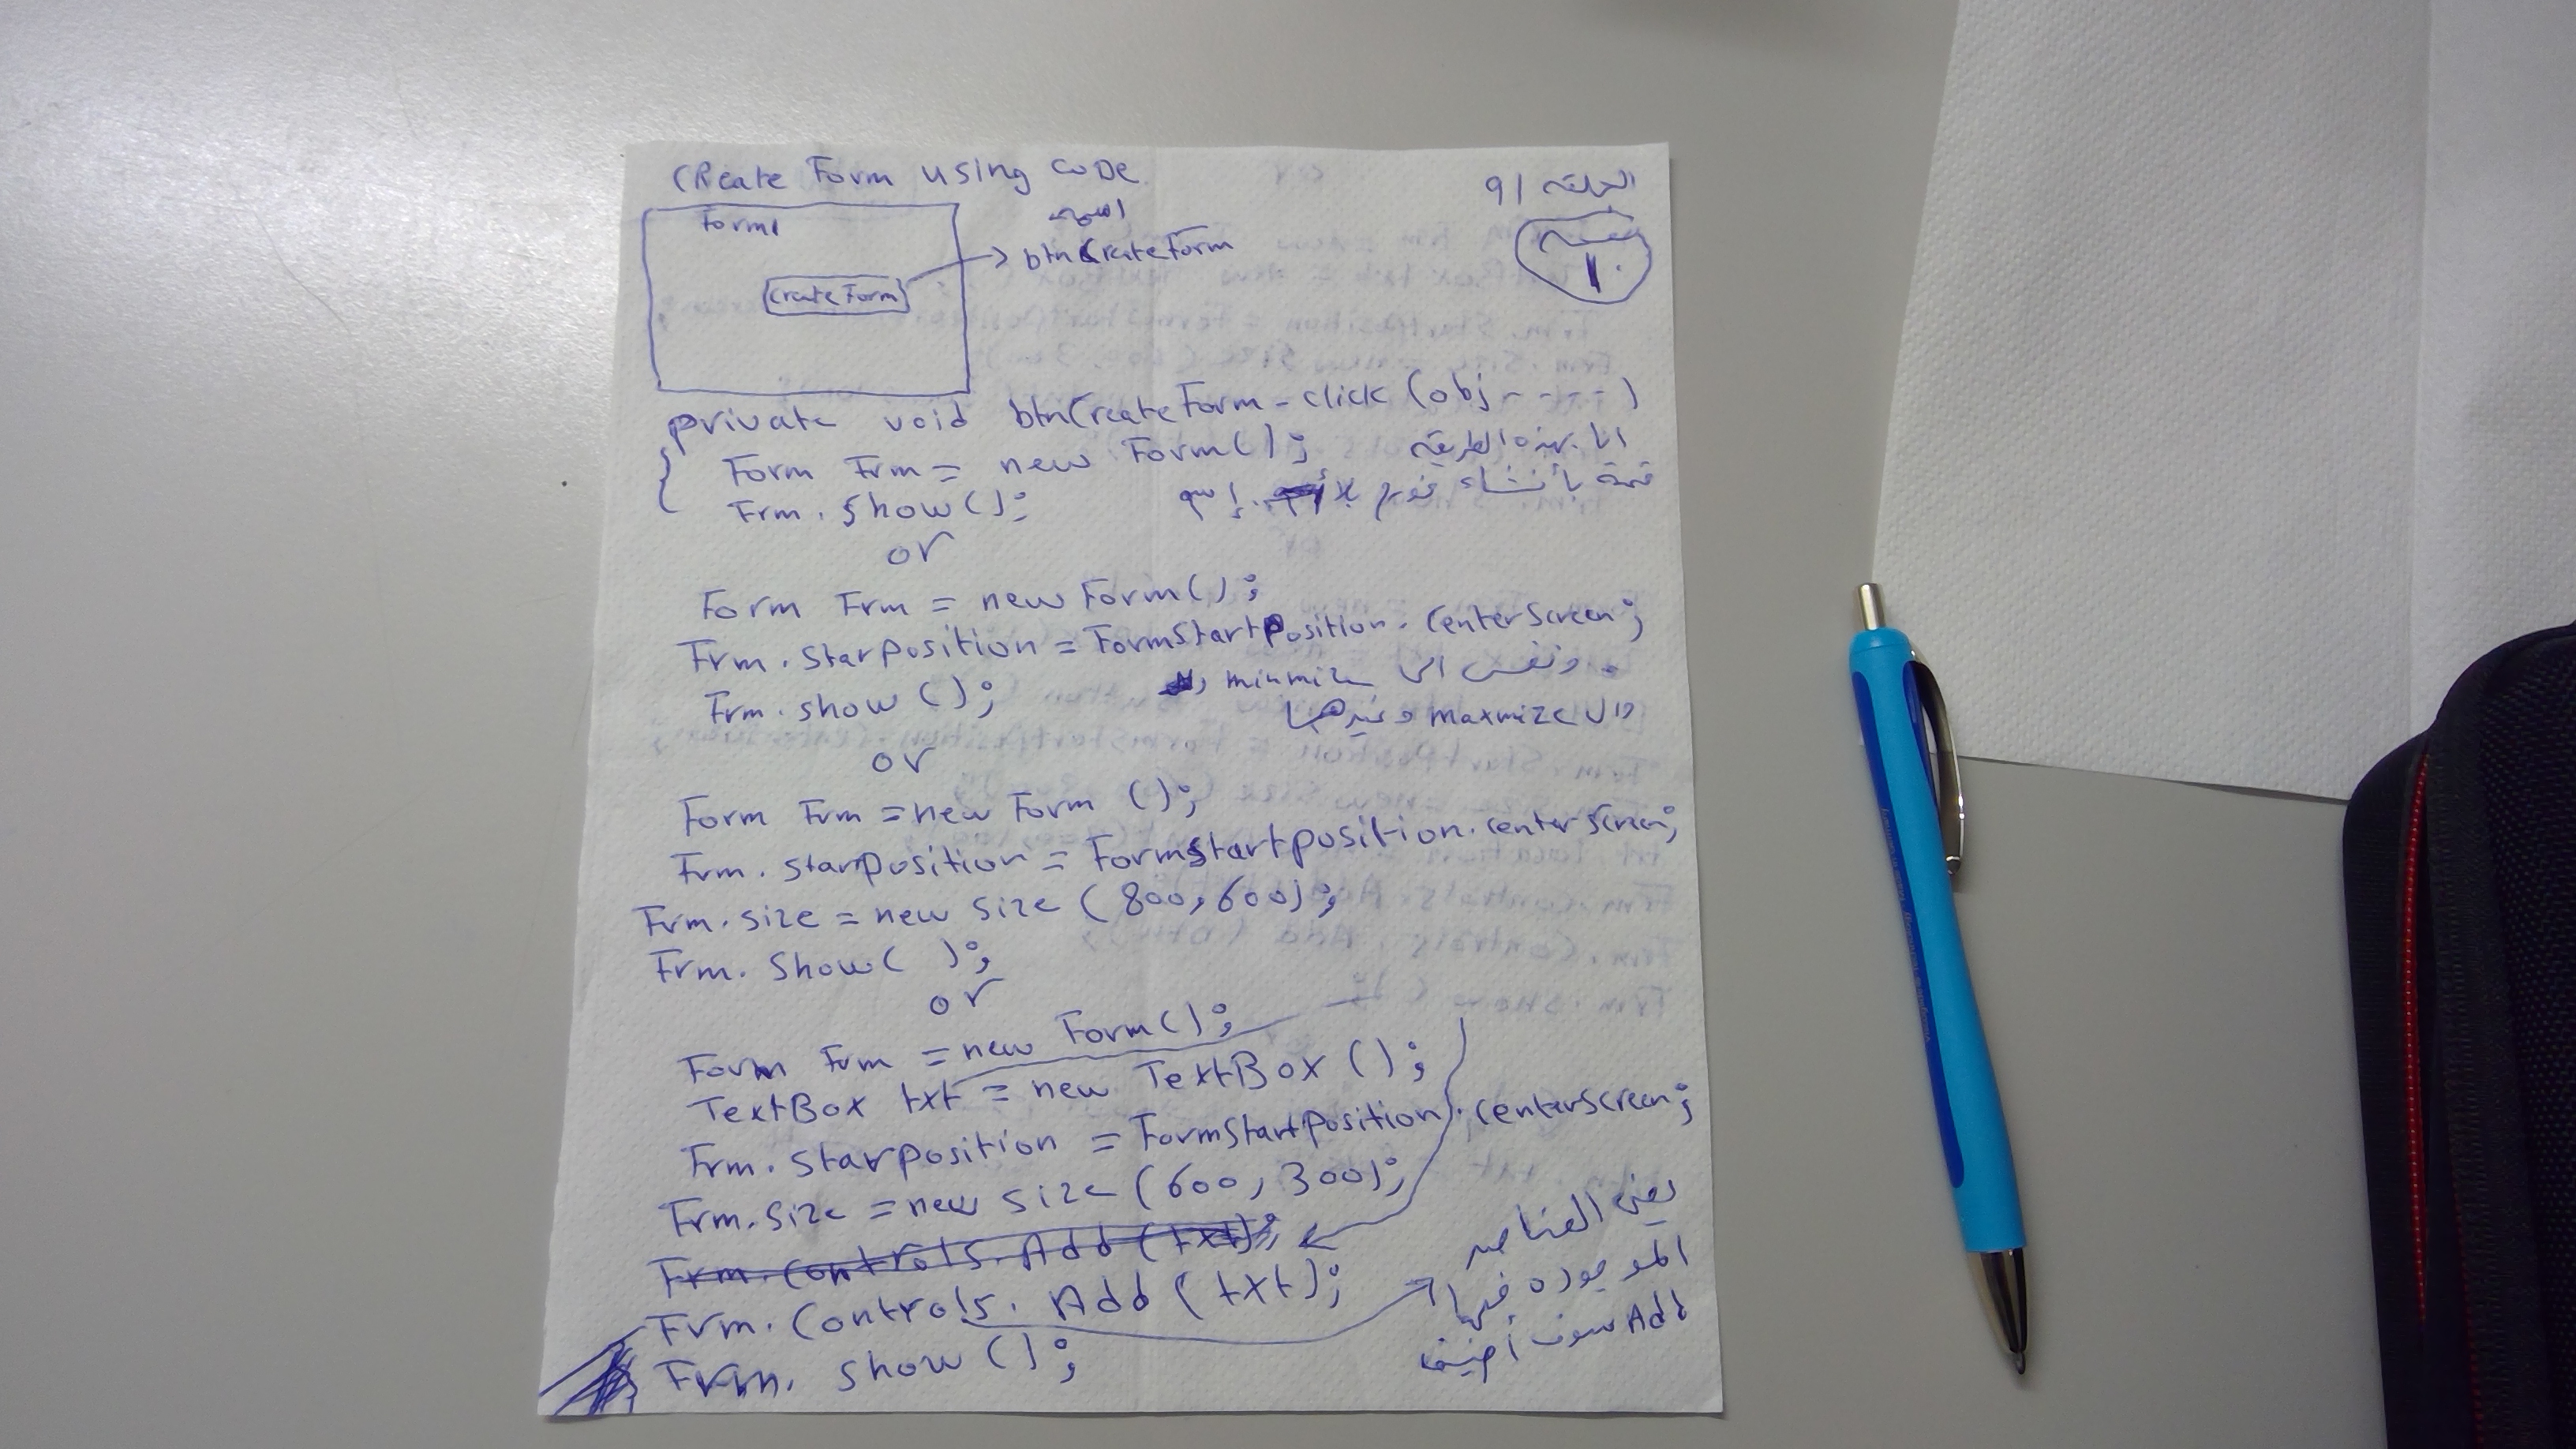 CReate Form using CODe
الحلقه 91
Form1
اسمه
btnCreateForm
Create Form
private void btnCreateForm-click (obj - - - - )
{ Form Frm = new Form();
انا بهذه الطريقه
Frm. Show();
قمة بأنشاء فورم بلا إسم
or
Form Frm = new Form();
Frm. StarPosition = FormStartPosition. CenterScreen;
ونفس ال minmize
Frm. show ();
وال maxmize وغيرها
or
Form Frm = new Form ();
Frm. StarPosition = FormStartposition. CenterScreen;
Frm. size = new size (800, 600);
Frm. Show( );
or
Form Frm = new Form();
TextBox txt = new TextBox ();
Frm. Starposition = FormStartPosition. CenterScreen;
Frm. size = new size (600, 300);
Frm. Controls. Add (txt);
Frm. Controls. Add (txt);
يعني العناصر
الموجوده فيها
Add سوف أضيف
Frm. show ();